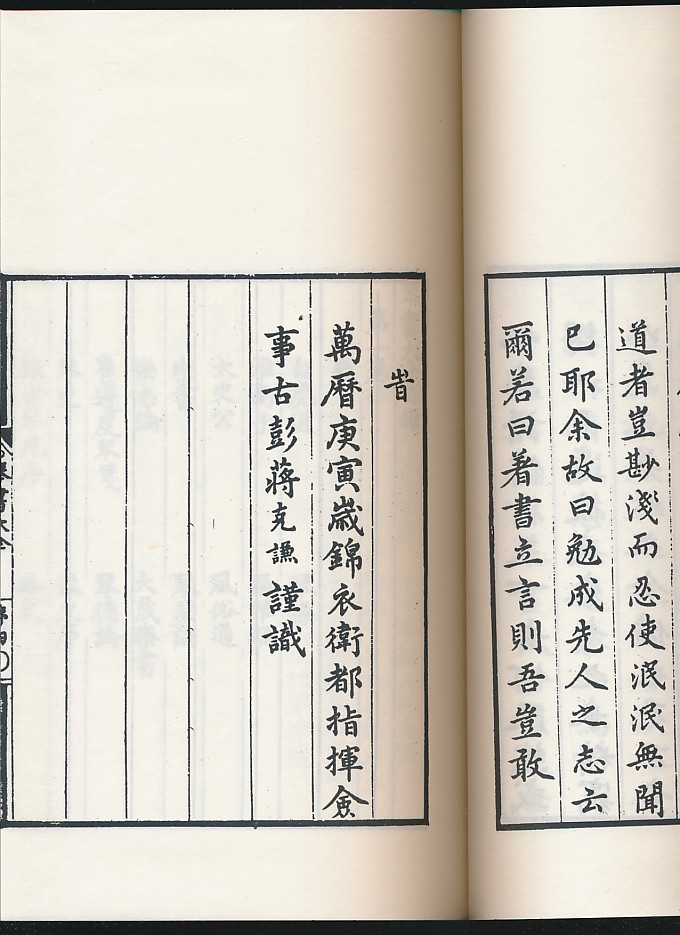 道者豈尠淺而忍使泯泯無聞
已耶余故曰勉成先人之志云
爾若曰著書立言則吾豈敢
旹
萬曆庚寅歲錦衣衛都指揮僉
事古彭蔣克謙謹識
琴書大全
序四